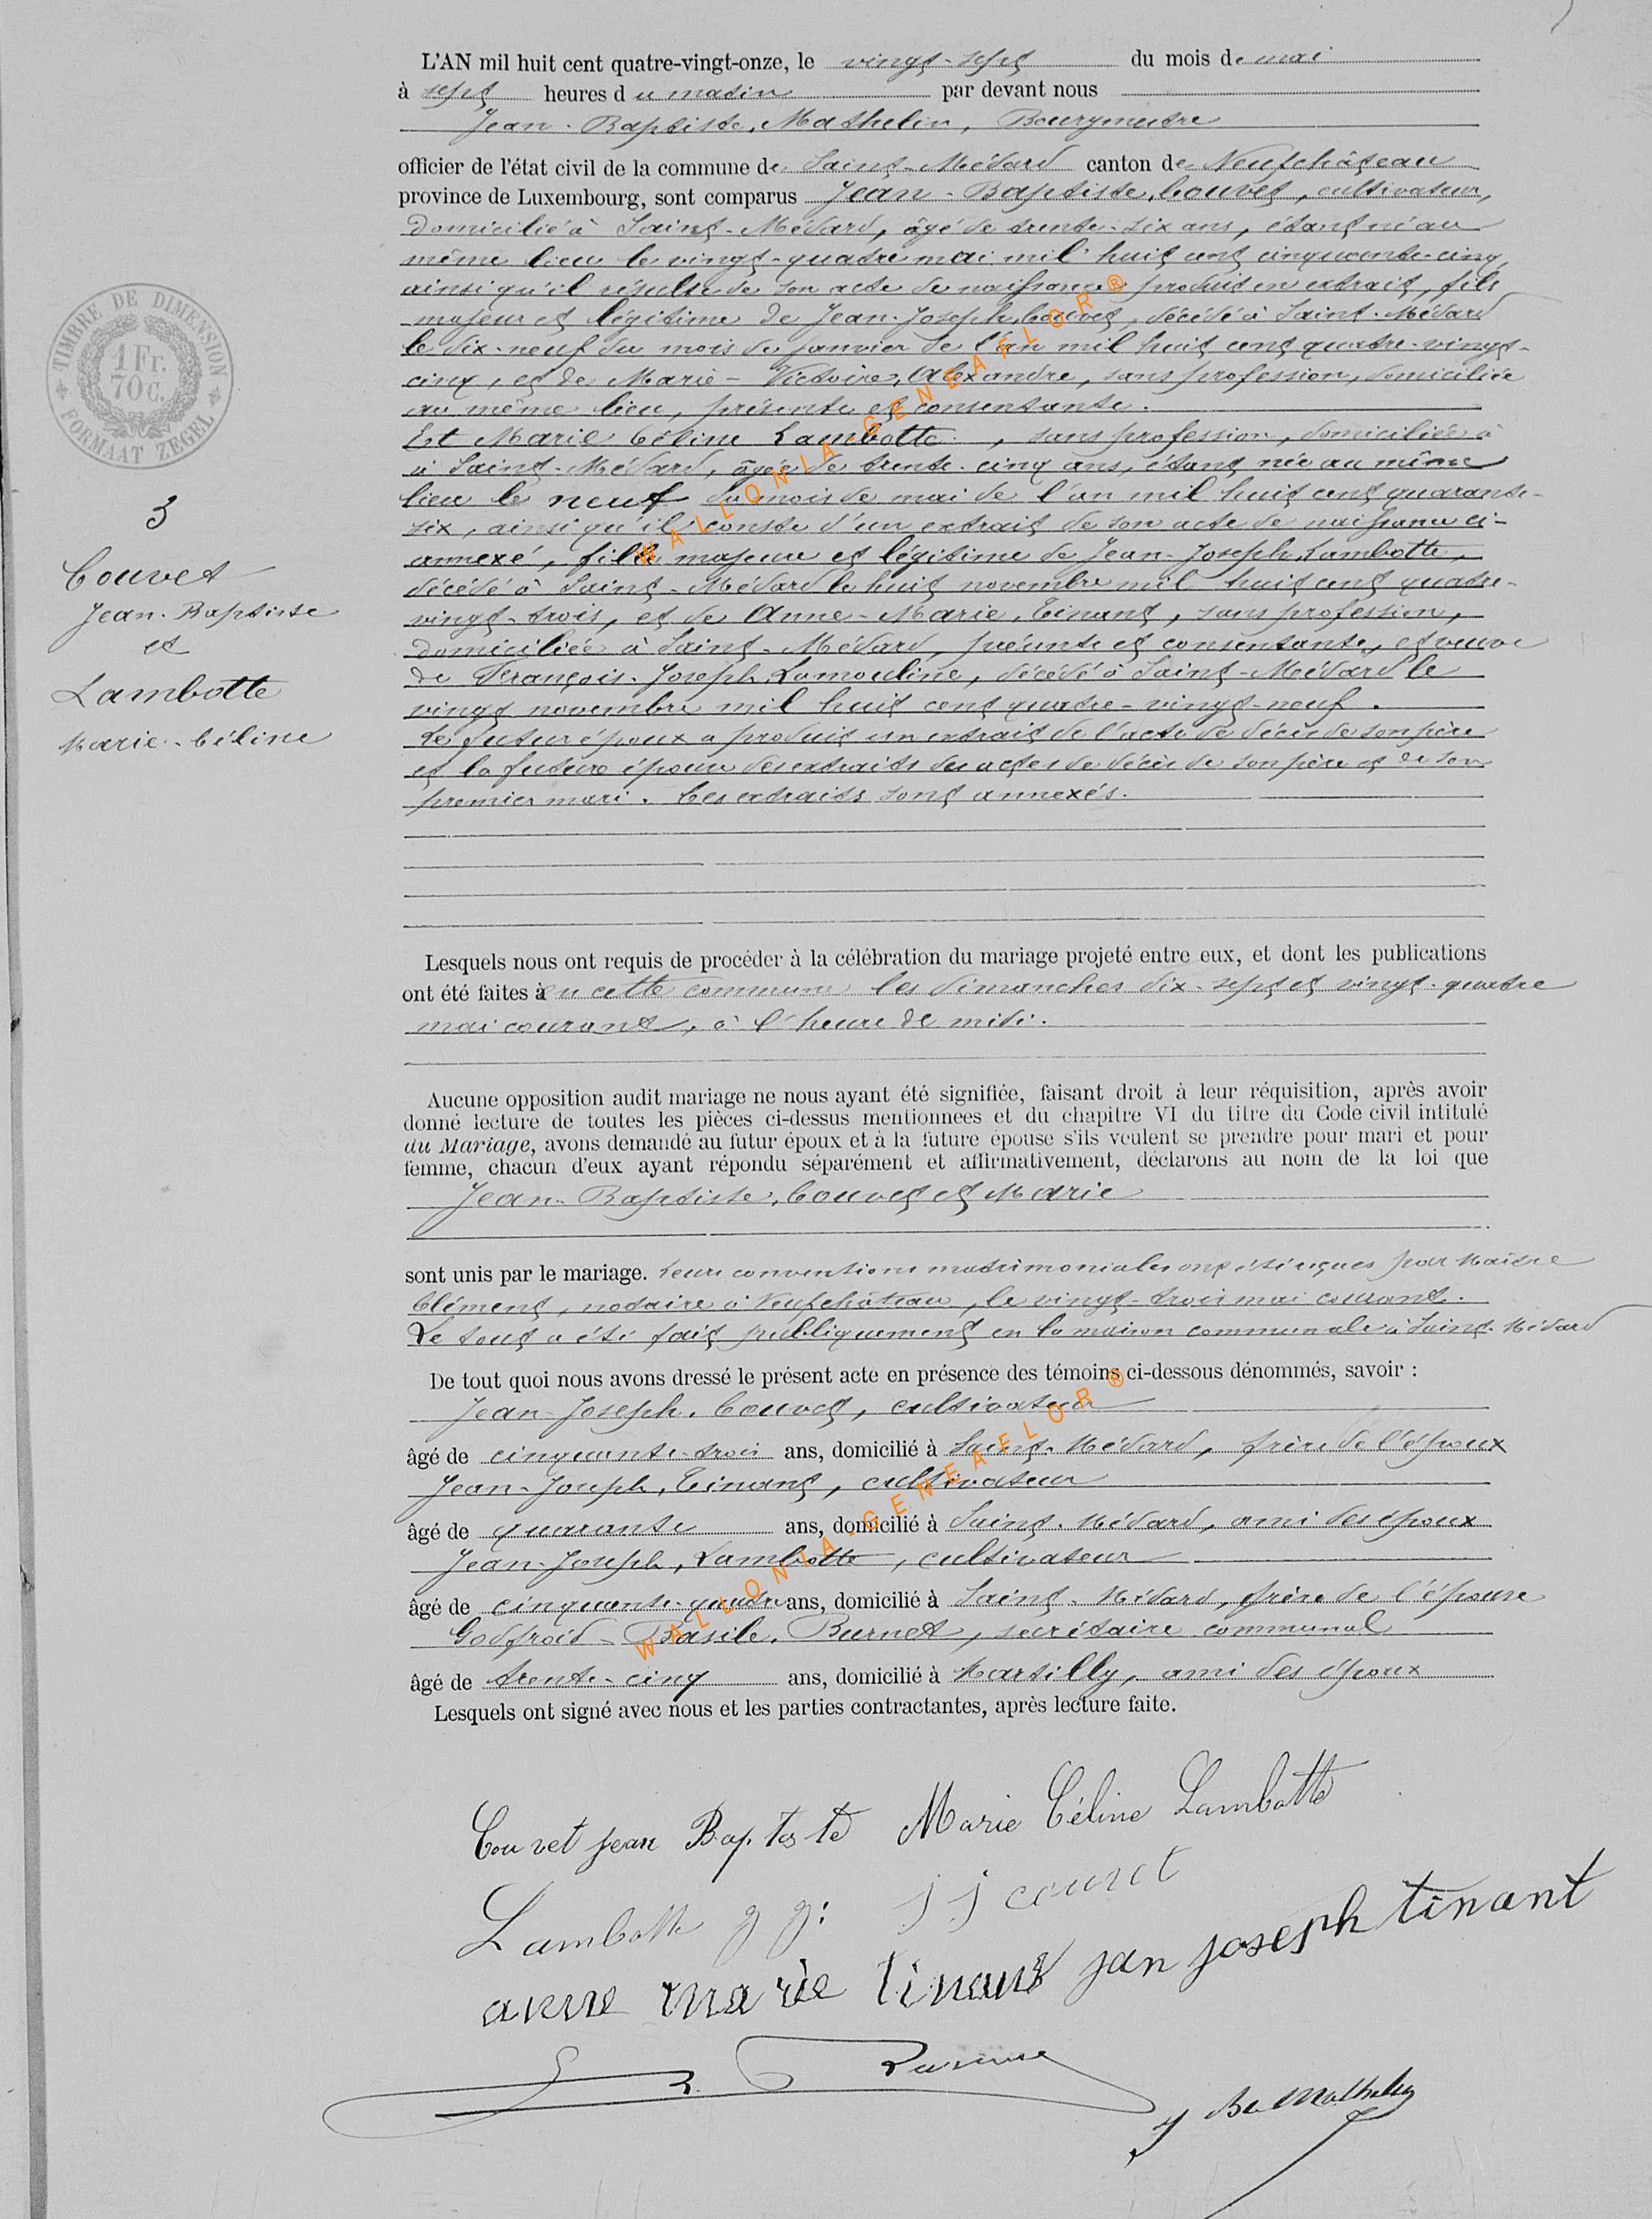 L'AN mil huit cent quatre-vingt-onze, le vingt-sept du mois de mai
à sept heures du matin par devant nous
Jean-Baptiste, Mathelin, Bourgmestre
officier de l'état civil de la commune de Saint-Médard canton de Neufchâteau
province de Luxembourg, sont comparus Jean-Baptiste, Couvet, cultivateur,
domicilié à Saint-Médard, âgé de trente-six ans, étant né au
même lieu le vingt-quatre mai mil huit cent cinquante-cinq,
ainsi qu'il résulte de son acte de naissance produit en extrait, fils
majeur et légitime de Jean-Joseph, Couvet, décédé à Saint-Médard
le dix-neuf du mois de janvier de l'an mil huit cent quatre-vingt-
cinq, et de Marie-Victoire, Alexandre, sans profession, domiciliée
au même lieu, présente et consentante.
Et Marie Céline Lambotte, sans profession, domiciliée à
à Saint-Médard, âgée de trente-cinq ans, étant née au même
lieu le neuf du mois de mai de l'an mil huit cent quarante-
six, ainsi qu'il conste d'un extrait de son acte de naissance ci-
annexé, fille majeure et légitime de Jean-Joseph, Lambotte,
décédé à Saint-Médard le huit novembre mil huit cent quatre-
vingt-trois, et de Anne-Marie, Tinant, sans profession,
domiciliée à Saint-Médard, présente et consentante, et veuve
de François-Joseph, Lamouline, décédé à Saint-Médard le
vingt novembre mil huit cent quatre-vingt-neuf.
Le futur époux a produit un extrait de l'acte de décès de son père
et la future épouse des extraits des actes de décès de son père et de son
premier mari. Ces extraits sont annexés.
TIMBRE DE DIMENSION
1 Fr.
70 C.
FORMAAT ZEGEL
3
Couvet
Jean-Baptiste
et
Lambotte
Marie-Céline
Lesquels nous ont requis de procéder à la célébration du mariage projeté entre eux, et dont les publications
ont été faites en cette commune les dimanches dix-sept et vingt-quatre
mai courant, à l'heure de midi.
Aucune opposition audit mariage ne nous ayant été signifiée, faisant droit à leur réquisition, après avoir
donné lecture de toutes les pièces ci-dessus mentionnees et du chapitre VI du titre du Code civil intitulé
du Mariage, avons demandé au futur époux et à la future épouse s'ils veulent se prendre pour mari et pour
femme, chacun d'eux ayant répondu séparément et affirmativement, déclarons au nom de la loi que
Jean-Baptiste, Couvet et Marie
sont unis par le mariage. Leurs conventions matrimoniales ont été reçues par Maître
Clément, notaire à Neufchâteau, le vingt-trois mai courant.
Le tout a été fait publiquement en la maison communale à Saint-Médard
De tout quoi nous avons dressé le présent acte en présence des témoins ci-dessous dénommés, savoir :
Jean-Joseph, Couvet, cultivateur
âgé de cinquante-trois ans, domicilié à Saint-Médard, frère de l'époux
Jean-Joseph, Tinant, cultivateur
âgé de quarante ans, domicilié à Saint-Médard, ami des époux
Jean-Joseph, Lambotte, cultivateur
âgé de cinquante-quatre ans, domicilié à Saint-Médard, frère de l'épouse
Godfroid-Basile, Burnet, secrétaire communal
âgé de trente-cinq ans, domicilié à Martilly, ami des époux
Lesquels ont signé avec nous et les parties contractantes, après lecture faite.
Couvet jean Baptiste Marie Céline Lambotte
Lambotte J J: J J couvet
anne marie tinant jan joseph tinant
J Bte Mathelin
WALLONIA-GENEAFLOR®
WALLONIA-GENEAFLOR®